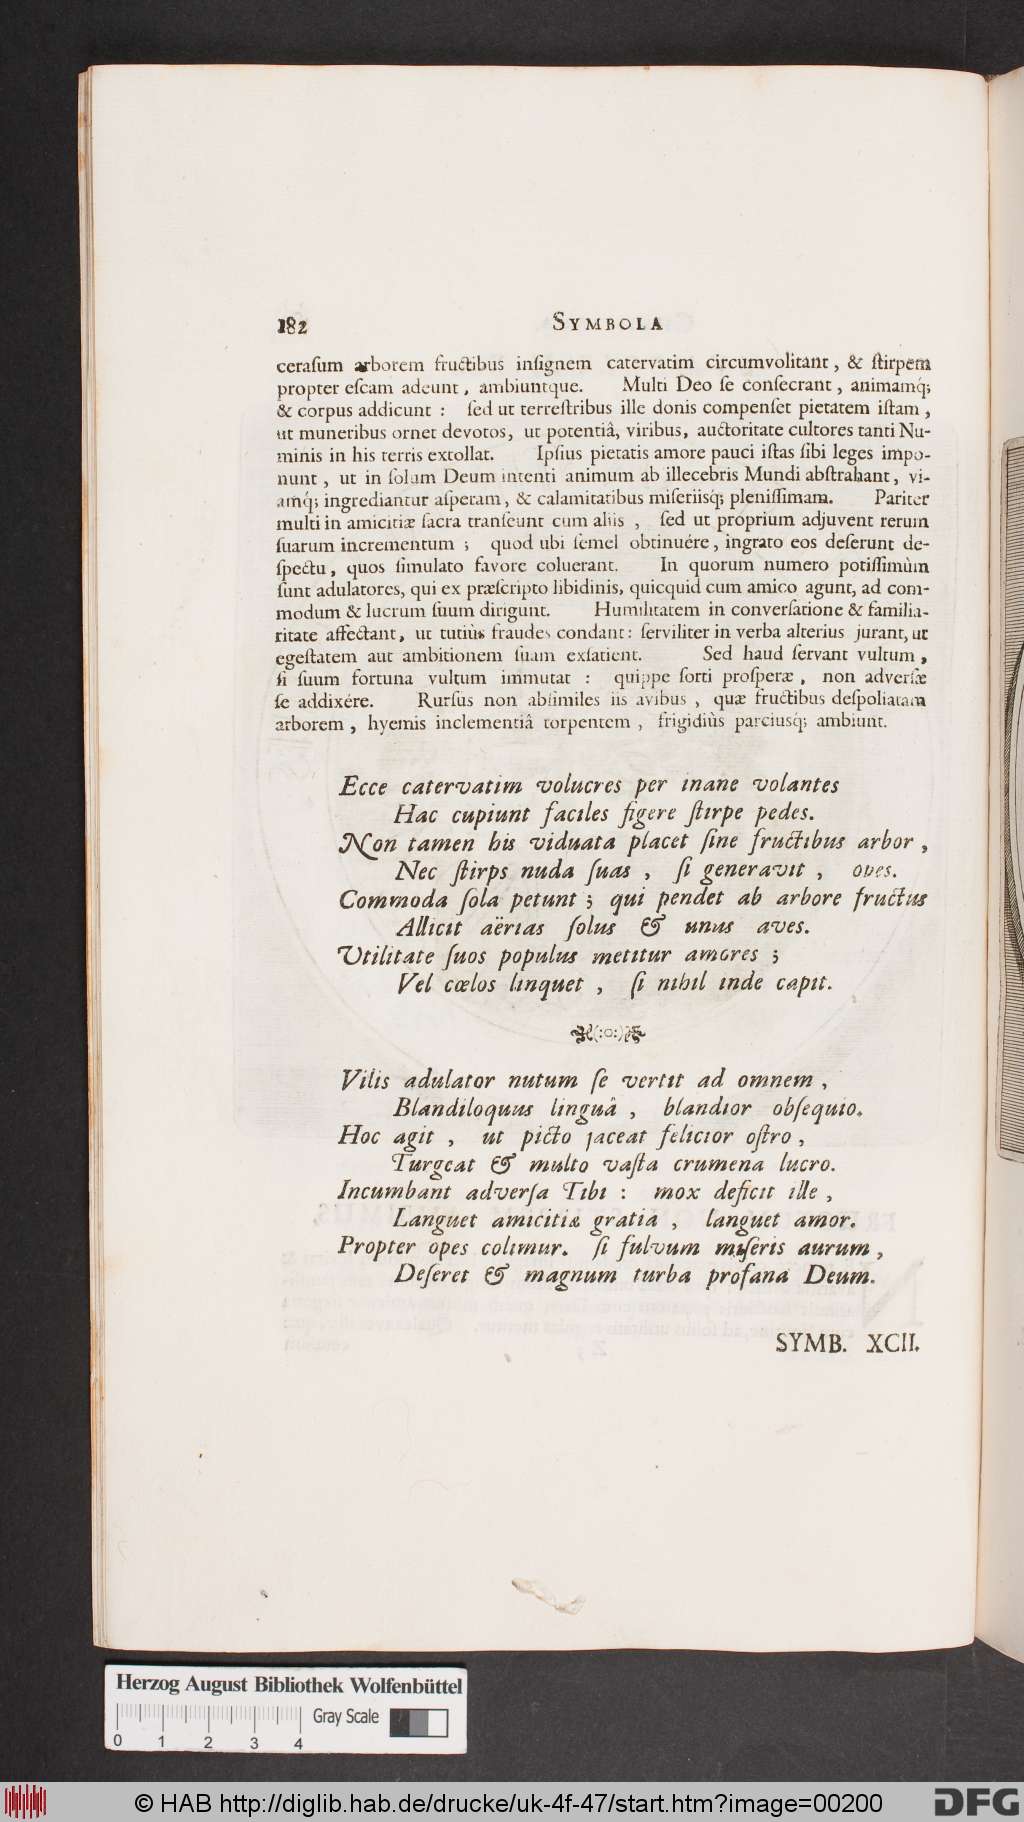 182 SYMBOLA
ceraſum arborem fructibus inſignem catervatim circumvolitant, & ſtirpem
propter eſcam adeunt, ambiuntque. Multi Deo ſe conſecrant, animamq́;
& corpus addicunt : ſed ut terreſtribus ille donis compenſet pietatem iſtam,
ut muneribus ornet devotos, ut potentiâ, viribus, auctoritate cultores tanti Nu-
minis in his terris extollat. Ipſius pietatis amore pauci iſtas ſibi leges impo-
nunt, ut in ſolum Deum intenti animum ab illecebris Mundi abſtrahant, vi-
amq́; ingrediantur aſperam, & calamitatibus miſeriisq́; pleniſſimam. Pariter
multi in amicitiæ ſacra tranſeunt cum aliis, ſed ut proprium adjuvent rerum
ſuarum incrementum ; quod ubi ſemel obtinuére, ingrato eos deſerunt de-
ſpectu, quos ſimulato favore coluerant. In quorum numero potiſſimùm
ſunt adulatores, qui ex præſcripto libidinis, quicquid cum amico agunt, ad com-
modum & lucrum ſuum dirigunt. Humilitatem in converſatione & familia-
ritate affectant, ut tutiùs fraudes condant: ſerviliter in verba alterius jurant, ut
egeſtatem aut ambitionem ſuam exſatient. Sed haud ſervant vultum,
ſi ſuum fortuna vultum immutat : quippe ſorti proſperæ, non adverſæ
ſe addixére. Rurſus non abſimiles iis avibus, quæ fructibus deſpoliatam
arborem, hyemis inclementiâ torpentem, frigidiùs parciusq́; ambiunt.
Ecce catervatim volucres per inane volantes
Hac cupiunt faciles figere ſtirpe pedes.
Non tamen his viduata placet ſine fructibus arbor,
Nec ſtirps nuda ſuas, ſi generavit, opes.
Commoda ſola petunt ; qui pendet ab arbore fructus
Allicit aërias ſolus & unus aves.
Utilitate ſuos populus metitur amores ;
Vel cœlos linquet, ſi nihil inde capit.
Vilis adulator nutum ſe vertit ad omnem,
Blandiloquus linguâ, blandior obſequio.
Hoc agit, ut picto jaceat felicior oſtro,
Turgeat & multo vaſta crumena lucro.
Incumbant adverſa Tibi : mox deficit ille,
Languet amicitiæ gratia, languet amor.
Propter opes colimur. ſi fulvum miſeris aurum,
Deſeret & magnum turba profana Deum.
SYMB. XCII.
Herzog August Bibliothek Wolfenbüttel
Gray Scale
0 1 2 3 4
© HAB http://diglib.hab.de/drucke/uk-4f-47/start.htm?image=00200 DFG